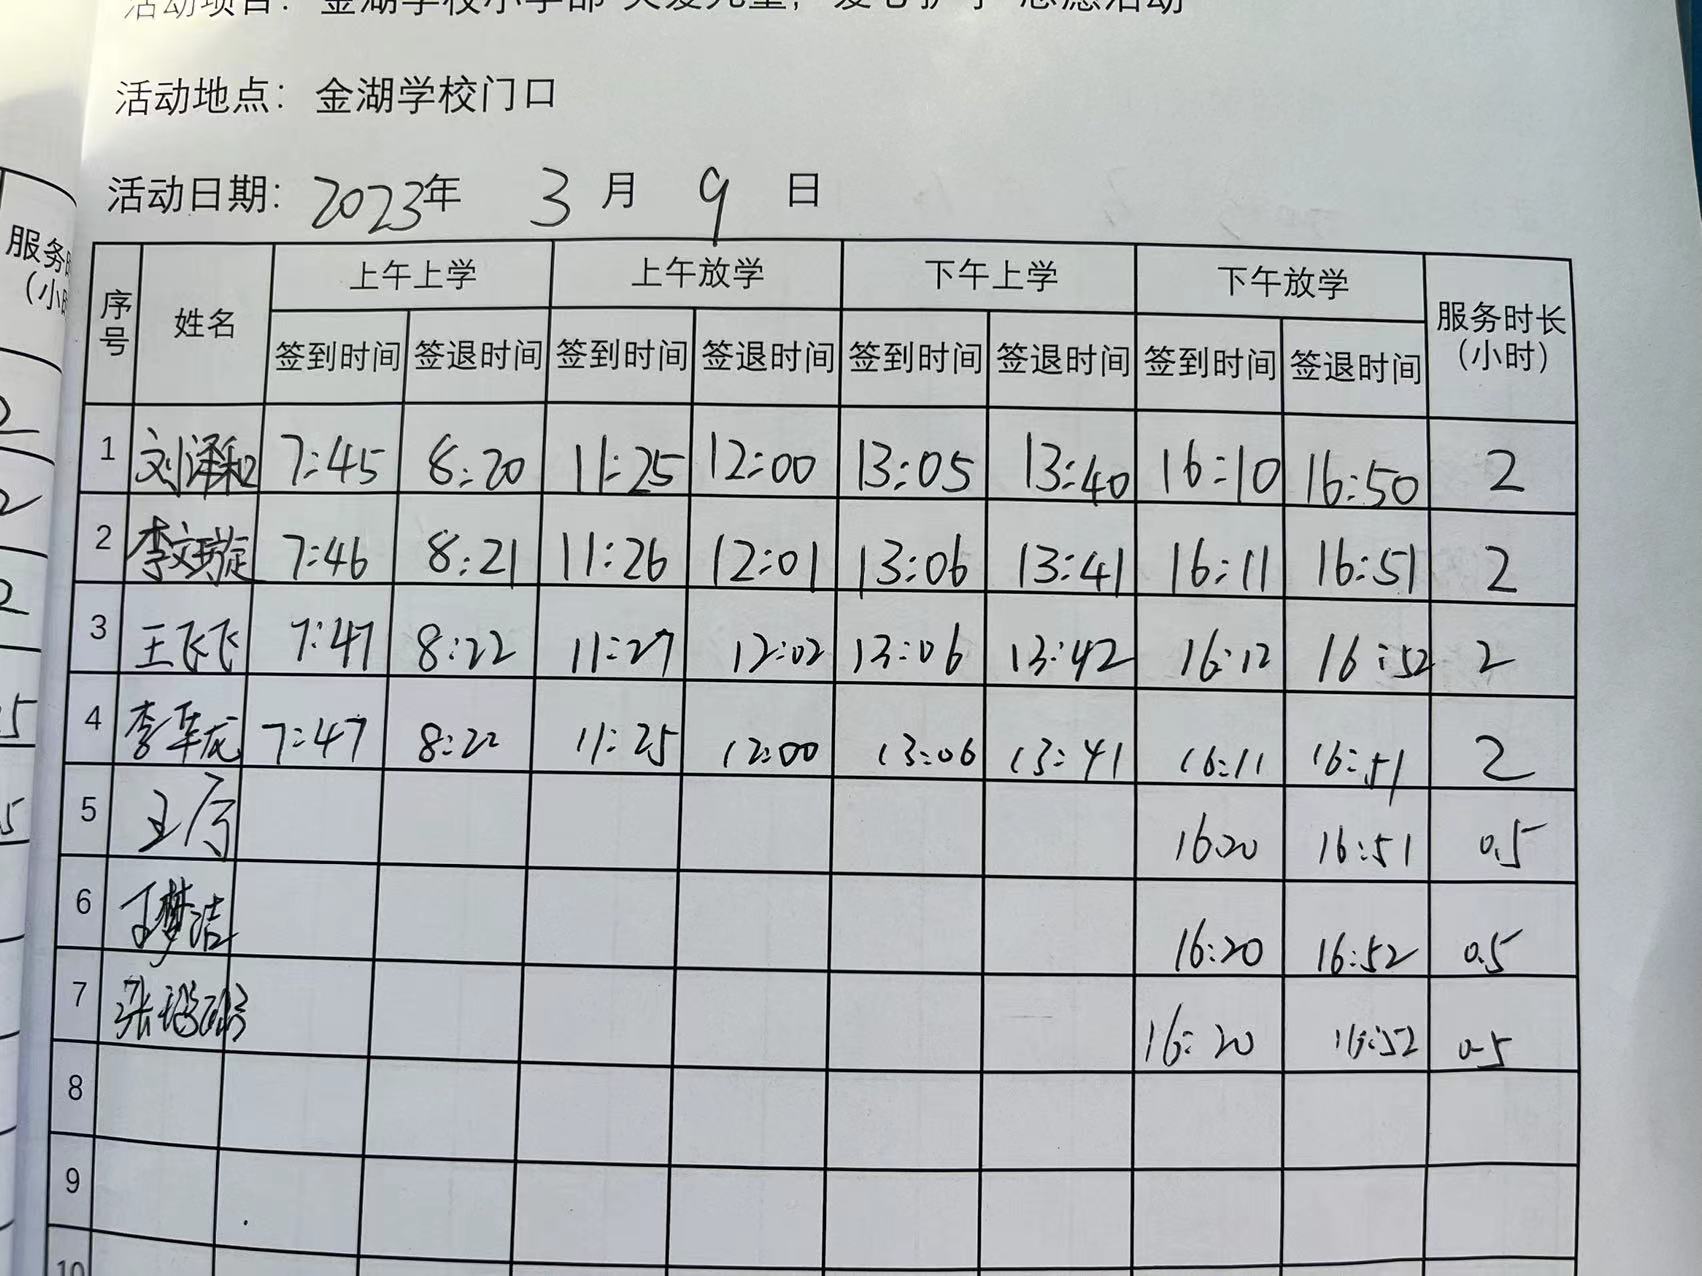 活动项目：金湖学校小学部"关爱儿童，爱心护学"志愿活动
活动地点：金湖学校门口
活动日期：2023年 3 月 9 日
服务时
（小时
序号 姓名 上午上学 上午放学 下午上学 下午放学 服务时长（小时）
签到时间 签退时间 签到时间 签退时间 签到时间 签退时间 签到时间 签退时间
1 刘泽和 7:45 8:20 11:25 12:00 13:05 13:40 16:10 16:50 2
2 李文璇 7:46 8:21 11:26 12:01 13:06 13:41 16:11 16:51 2
3 王飞飞 7:47 8:22 11:27 12:02 13:06 13:42 16:12 16:52 2
4 李军龙 7:47 8:22 11:25 12:00 13:06 13:41 16:11 16:51 2
5 王 16:20 16:51 0.5
6 王梦洁 16:20 16:52 0.5
7 张 16:20 16:52 0.5
8
9
10